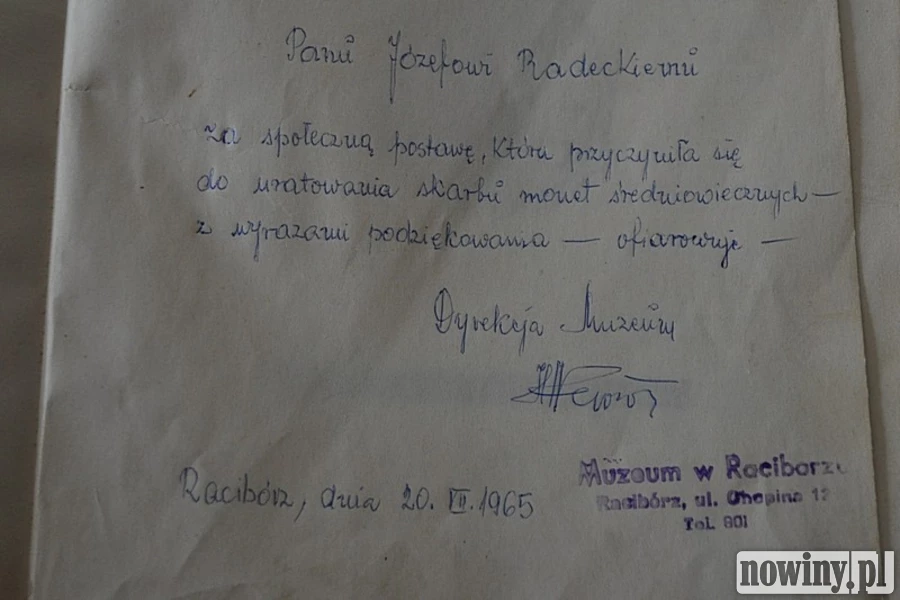 Panu Józefowi Radeckiemu
za społeczną postawę, która przyczyniła się
do uratowania skarbu monet średniowiecznych —
z wyrazami podziękowania — ofiarowuje —
Dyrekcja Muzeum
Racibórz, dnia 20. VII. 1965
Muzeum w Raciborzu
Racibórz, ul. Chopina 12
Tel. 801
nowiny.pl